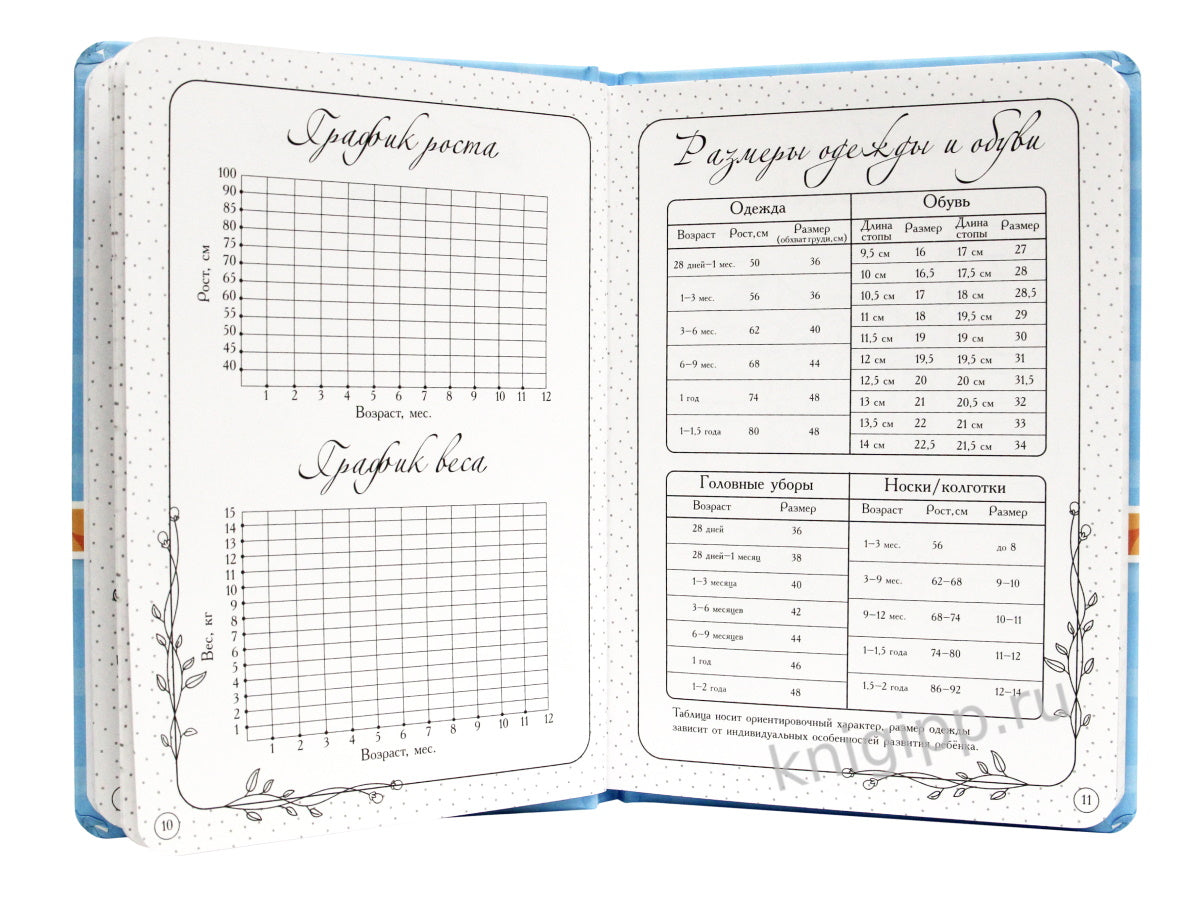 График роста
100
90
85
80
75
70
65
60
55
50
45
40
Рост, см
1 2 3 4 5 6 7 8 9 10 11 12
Возраст, мес.
График веса
15
14
13
12
11
10
9
8
7
6
5
4
3
2
1
Вес, кг
1 2 3 4 5 6 7 8 9 10 11 12
Возраст, мес.
10
Размеры одежды и обуви
Одежда
Возраст Рост,см Размер (обхват груди,см)
28 дней–1 мес. 50 36
1–3 мес. 56 36
3–6 мес. 62 40
6–9 мес. 68 44
1 год 74 48
1–1,5 года 80 48
Обувь
Длина стопы Размер Длина стопы Размер
9,5 см 16 17 см 27
10 см 16,5 17,5 см 28
10,5 см 17 18 см 28,5
11 см 18 19,5 см 29
11,5 см 19 19 см 30
12 см 19,5 19,5 см 31
12,5 см 20 20 см 31,5
13 см 21 20,5 см 32
13,5 см 22 21 см 33
14 см 22,5 21,5 см 34
Головные уборы
Возраст Размер
28 дней 36
28 дней–1 месяц 38
1–3 месяца 40
3–6 месяцев 42
6–9 месяцев 44
1 год 46
1–2 года 48
Носки/колготки
Возраст Рост,см Размер
1–3 мес. 56 до 8
3–9 мес. 62–68 9–10
9–12 мес. 68–74 10–11
1–1,5 года 74–80 11–12
1,5–2 года 86–92 12–14
Таблица носит ориентировочный характер, размер одежды
зависит от индивидуальных особенностей развития ребенка.
knigipp.ru
11